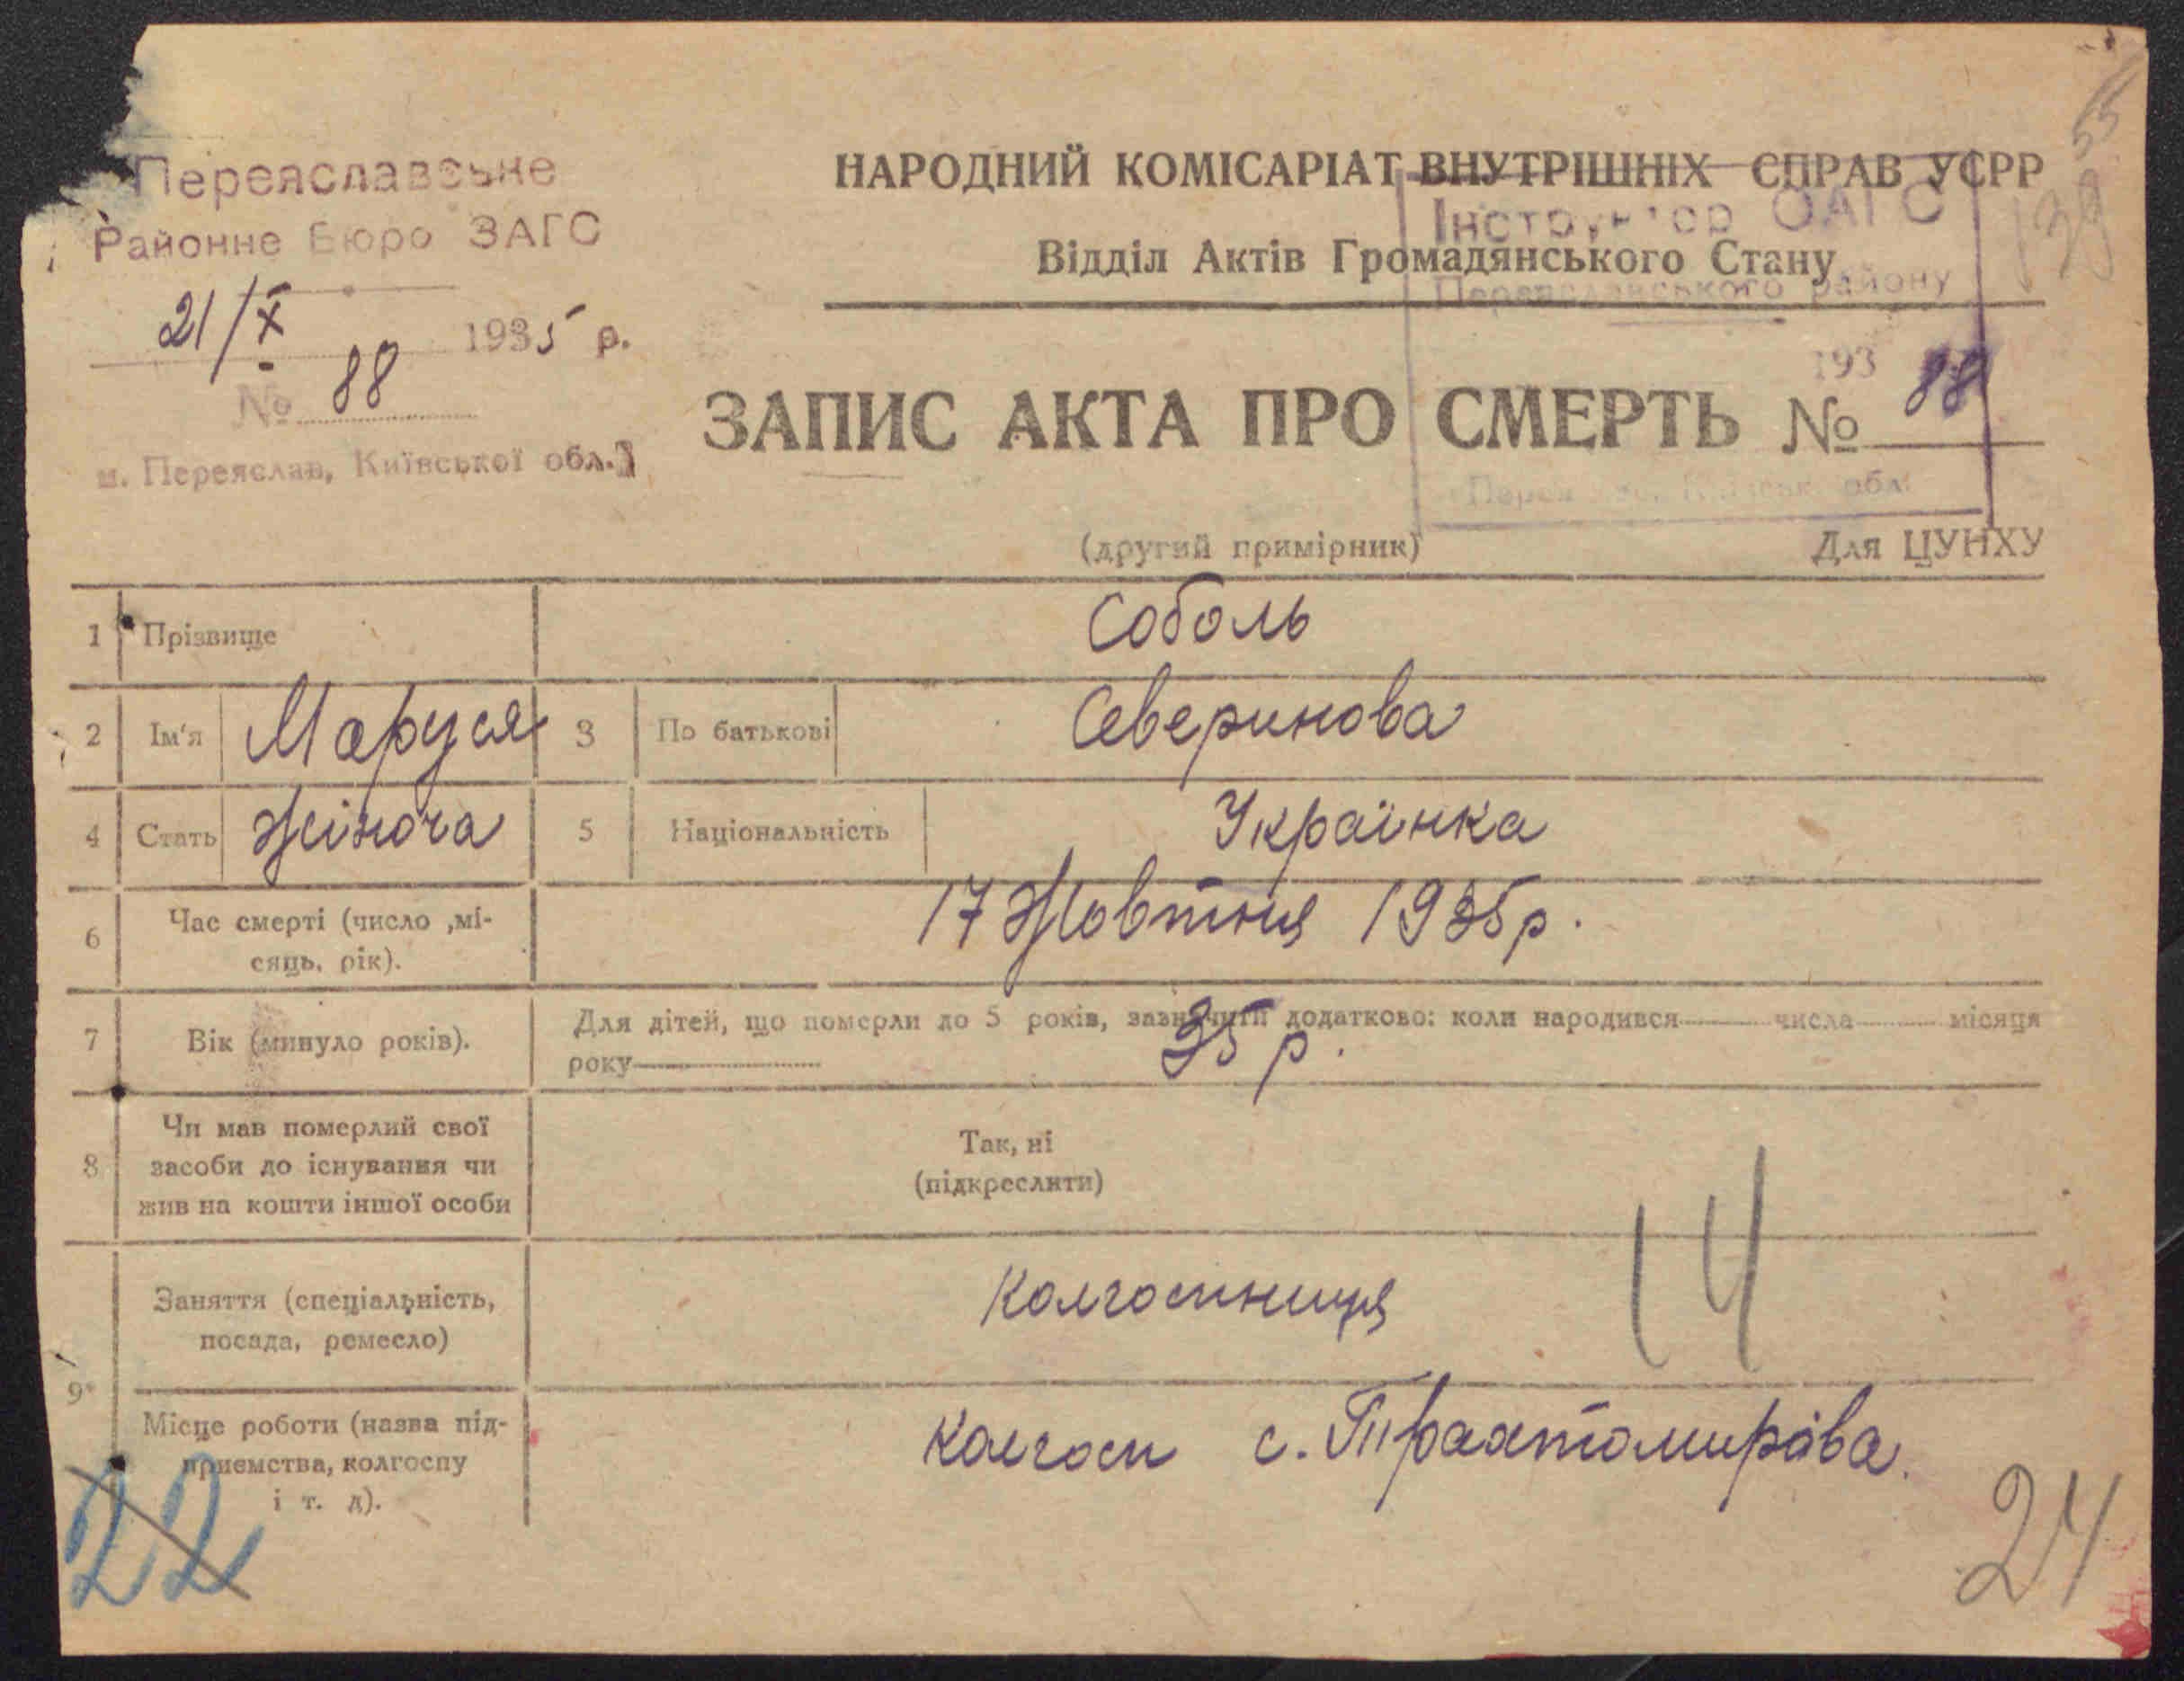 Переяславське
Районне Бюро ЗАГС
21/X 1935 р.
№ 88
м. Переяслав, Київської обл.
НАРОДНИЙ КОМІСАРІАТ ВНУТРІШНІХ СПРАВ УСРР
Відділ Актів Громадянського Стану
Інструктор ОАГС
Переяславського району
193
ЗАПИС АКТА ПРО СМЕРТЬ № 88
обл
(другий примірник)
Для ЦУНХУ
1 Прізвище Соболь
2 Ім'я Маруся 3 По батькові Северинова
4 Стать Жіноча 5 Національність Українка
6 Час смерті (число ,мі-
сяць, рік). 17 Жовтня 1935 р.
7 Вік (минуло років). Для дітей, що померли до 5 років, зазначити додатково: коли народився числа місяця
року 35 р.
8 Чи мав померлий свої
засоби до існування чи
жив на кошти іншої особи
Так, ні
(підкреслити)
9 Заняття (спеціальність,
посада, ремесло) Колгоспниця
14
Місце роботи (назва під-
приємства, колгоспу
і т. д). Колгосп с. Трахтомирова.
22
24